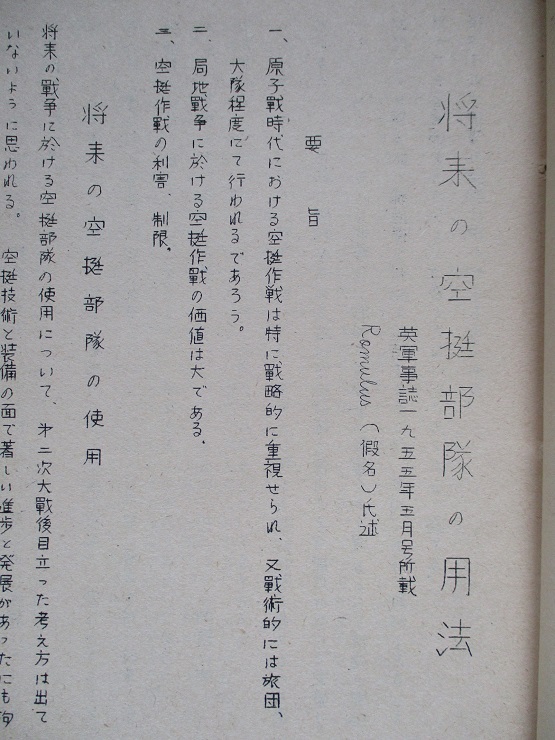 将来の空挺部隊の用法
英軍事誌一九五五年五月号所載
Romulus（假名）氏述
要旨
一、原子戰時代における空挺作戦は特に戦略的に重視せられ、又戰術的には旅団、
大隊程度にて行われるであろう。
二、局地戰争に於ける空挺作戰の価値は大である。
三、空挺作戰の利害、制限。
将来の空挺部隊の使用
将来の戰争に於ける空挺部隊の使用について、才二次大戰後目立った考え方は出て
いないように思われる。空挺技術と装備の面で著しい進歩と発展があったにも拘